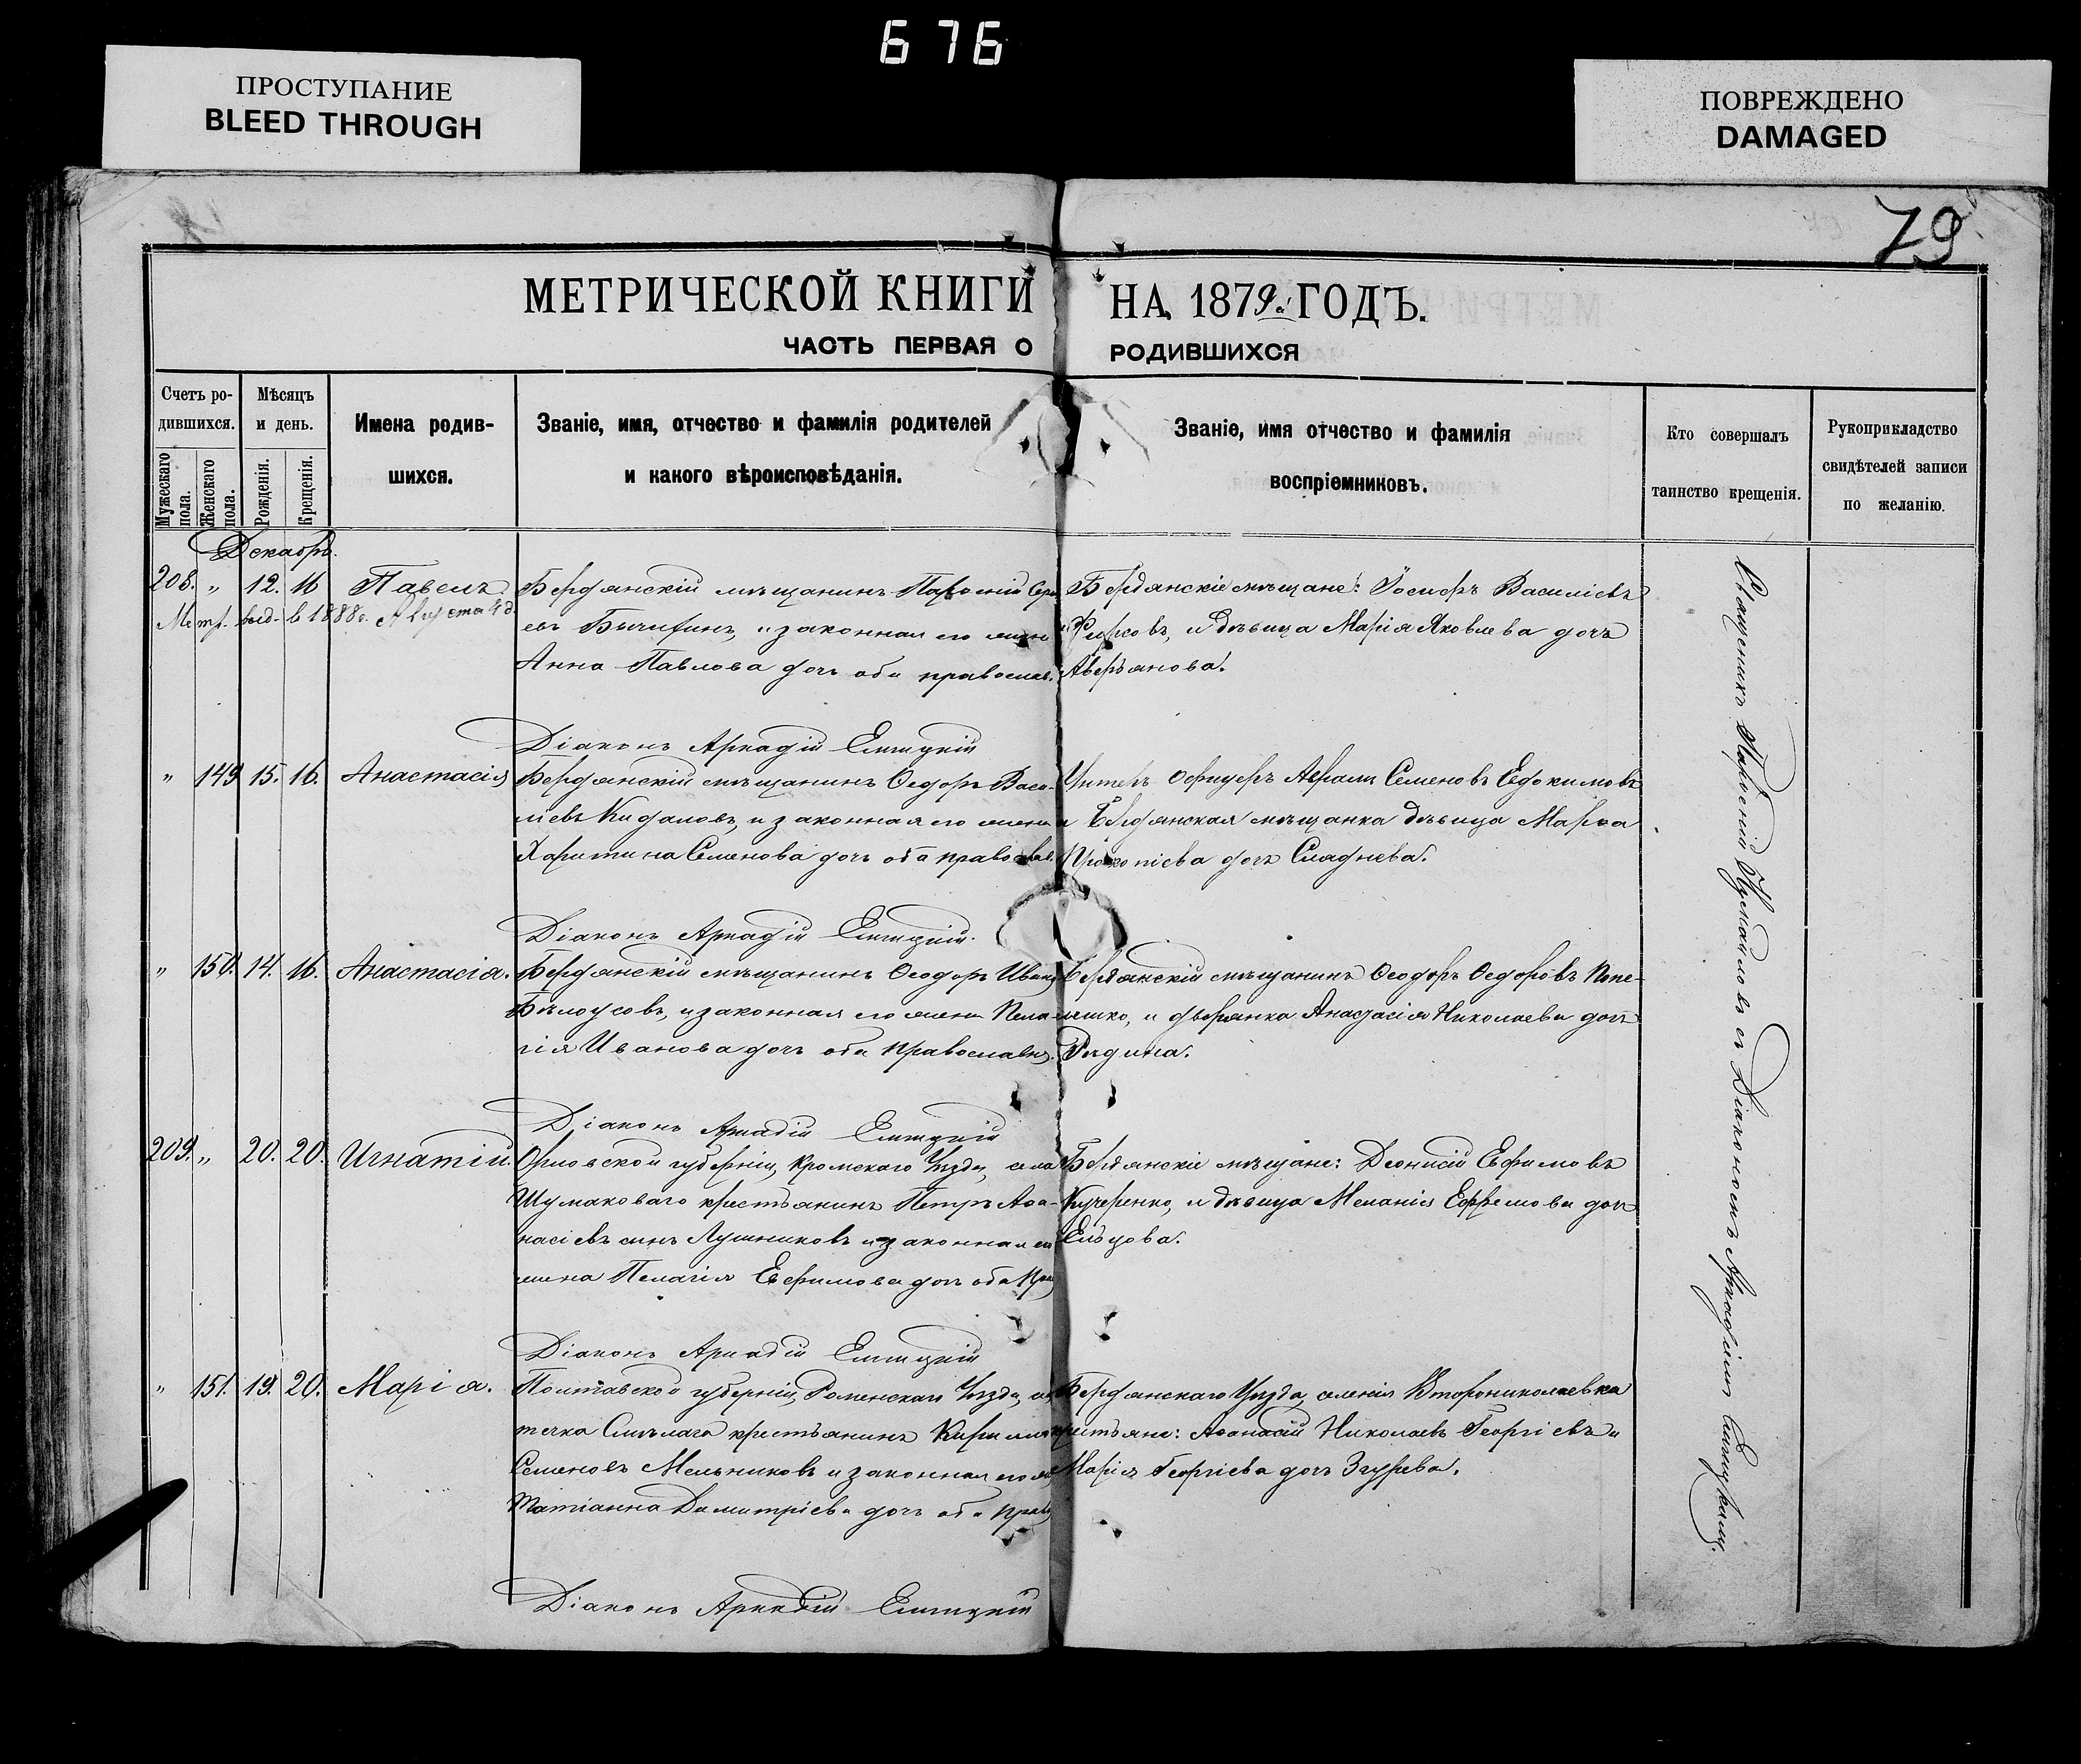 676
ПРОСТУПАНИЕ
BLEED THROUGH
ПОВРЕЖДЕНО
DAMAGED
79
МЕТРИЧЕСКОЙ КНИГИ НА 1879 г. ГОДЪ.
ЧАСТЬ ПЕРВАЯ О РОДИВШИХСЯ
Счетъ ро-
дившихся.
Мужескаго пола.
Женскаго пола.
Мѣсяцъ
и день.
Рожденія.
Крещенія.
Имена родив-
шихся.
Званіе, имя, отчество и фамилія родителей
и какого вѣроисповѣданія.
Званіе, имя отчество и фамилія
воспріемниковъ.
Кто совершалъ
таинство крещенія.
Рукоприкладство
свидѣтелей записи
по желанію.
Декабрь.
208. " 12. 16 Павелъ
Метр. выд. в 1888 г. Августа 4 д.
Бердянскій мѣщанинъ
евъ и законная его жена
Анна Павлова дочь оба православ.
Бердянскіе мѣщане: Іосифъ Василіевъ
Фирсовъ, и дѣвица Марія Яковлева дочь
Аверьянова.
Діаконъ Аркадій
" 149 15. 16. Анастасія
Бердянскій мѣщанинъ Ѳедоръ Васи-
ліевъ Кидаловъ, и законная его жена
Харитина Семенова дочь оба православ.
Унтеръ Офицеръ Аврамъ Семеновъ Евдокимовъ
и Бердянская мѣщанка дѣвица Марѳа
Прокопіева дочь Сладнева.
Діаконъ Аркадій
" 150. 14. 16. Анастасія.
Бердянскій мѣщанинъ Ѳеодоръ Иван
Бѣлоусовъ, и законная его жена Пела-
гія Иванова дочь оба православн.
Бердянскій мѣщанинъ Ѳеодоръ Ѳедоровъ Попе-
лешко, и дворянка Анастасія Николаева дочь
Рѣдина.
Діаконъ Аркадій
209. " 20. 20. Игнатій.
Орловской губерніи, Кромскаго Уѣзда, села
Шумаковаго крестьянинъ Петръ Аѳа-
насіевъ сынъ Лушниковъ и законная его
жена Пелагія Евфимова дочь оба пра
Бердянскіе мѣщане: Діонисій Евфимовъ
Кучеренко, и дѣвица Меланія Ефремова дочь
Ельцова.
Діаконъ Аркадій
" 151. 19. 20. Марія.
Полтавской губерніи, Роменскаго Уѣзда, мѣ
течка Смѣлаго крестьянинъ Кирилло
Семеновъ Мельниковъ и законная его же
Татіанна Димитріева дочь оба прав
Бердянскаго Уѣзда, селенія Второниколаевка
крестьяне: Аѳанасій Николаевъ Георгіевъ и
Марія Георгіева дочь Згурева.
Діаконъ Аркадій
Священникъ Парѳеній съ Діакономъ Аркадіемъ